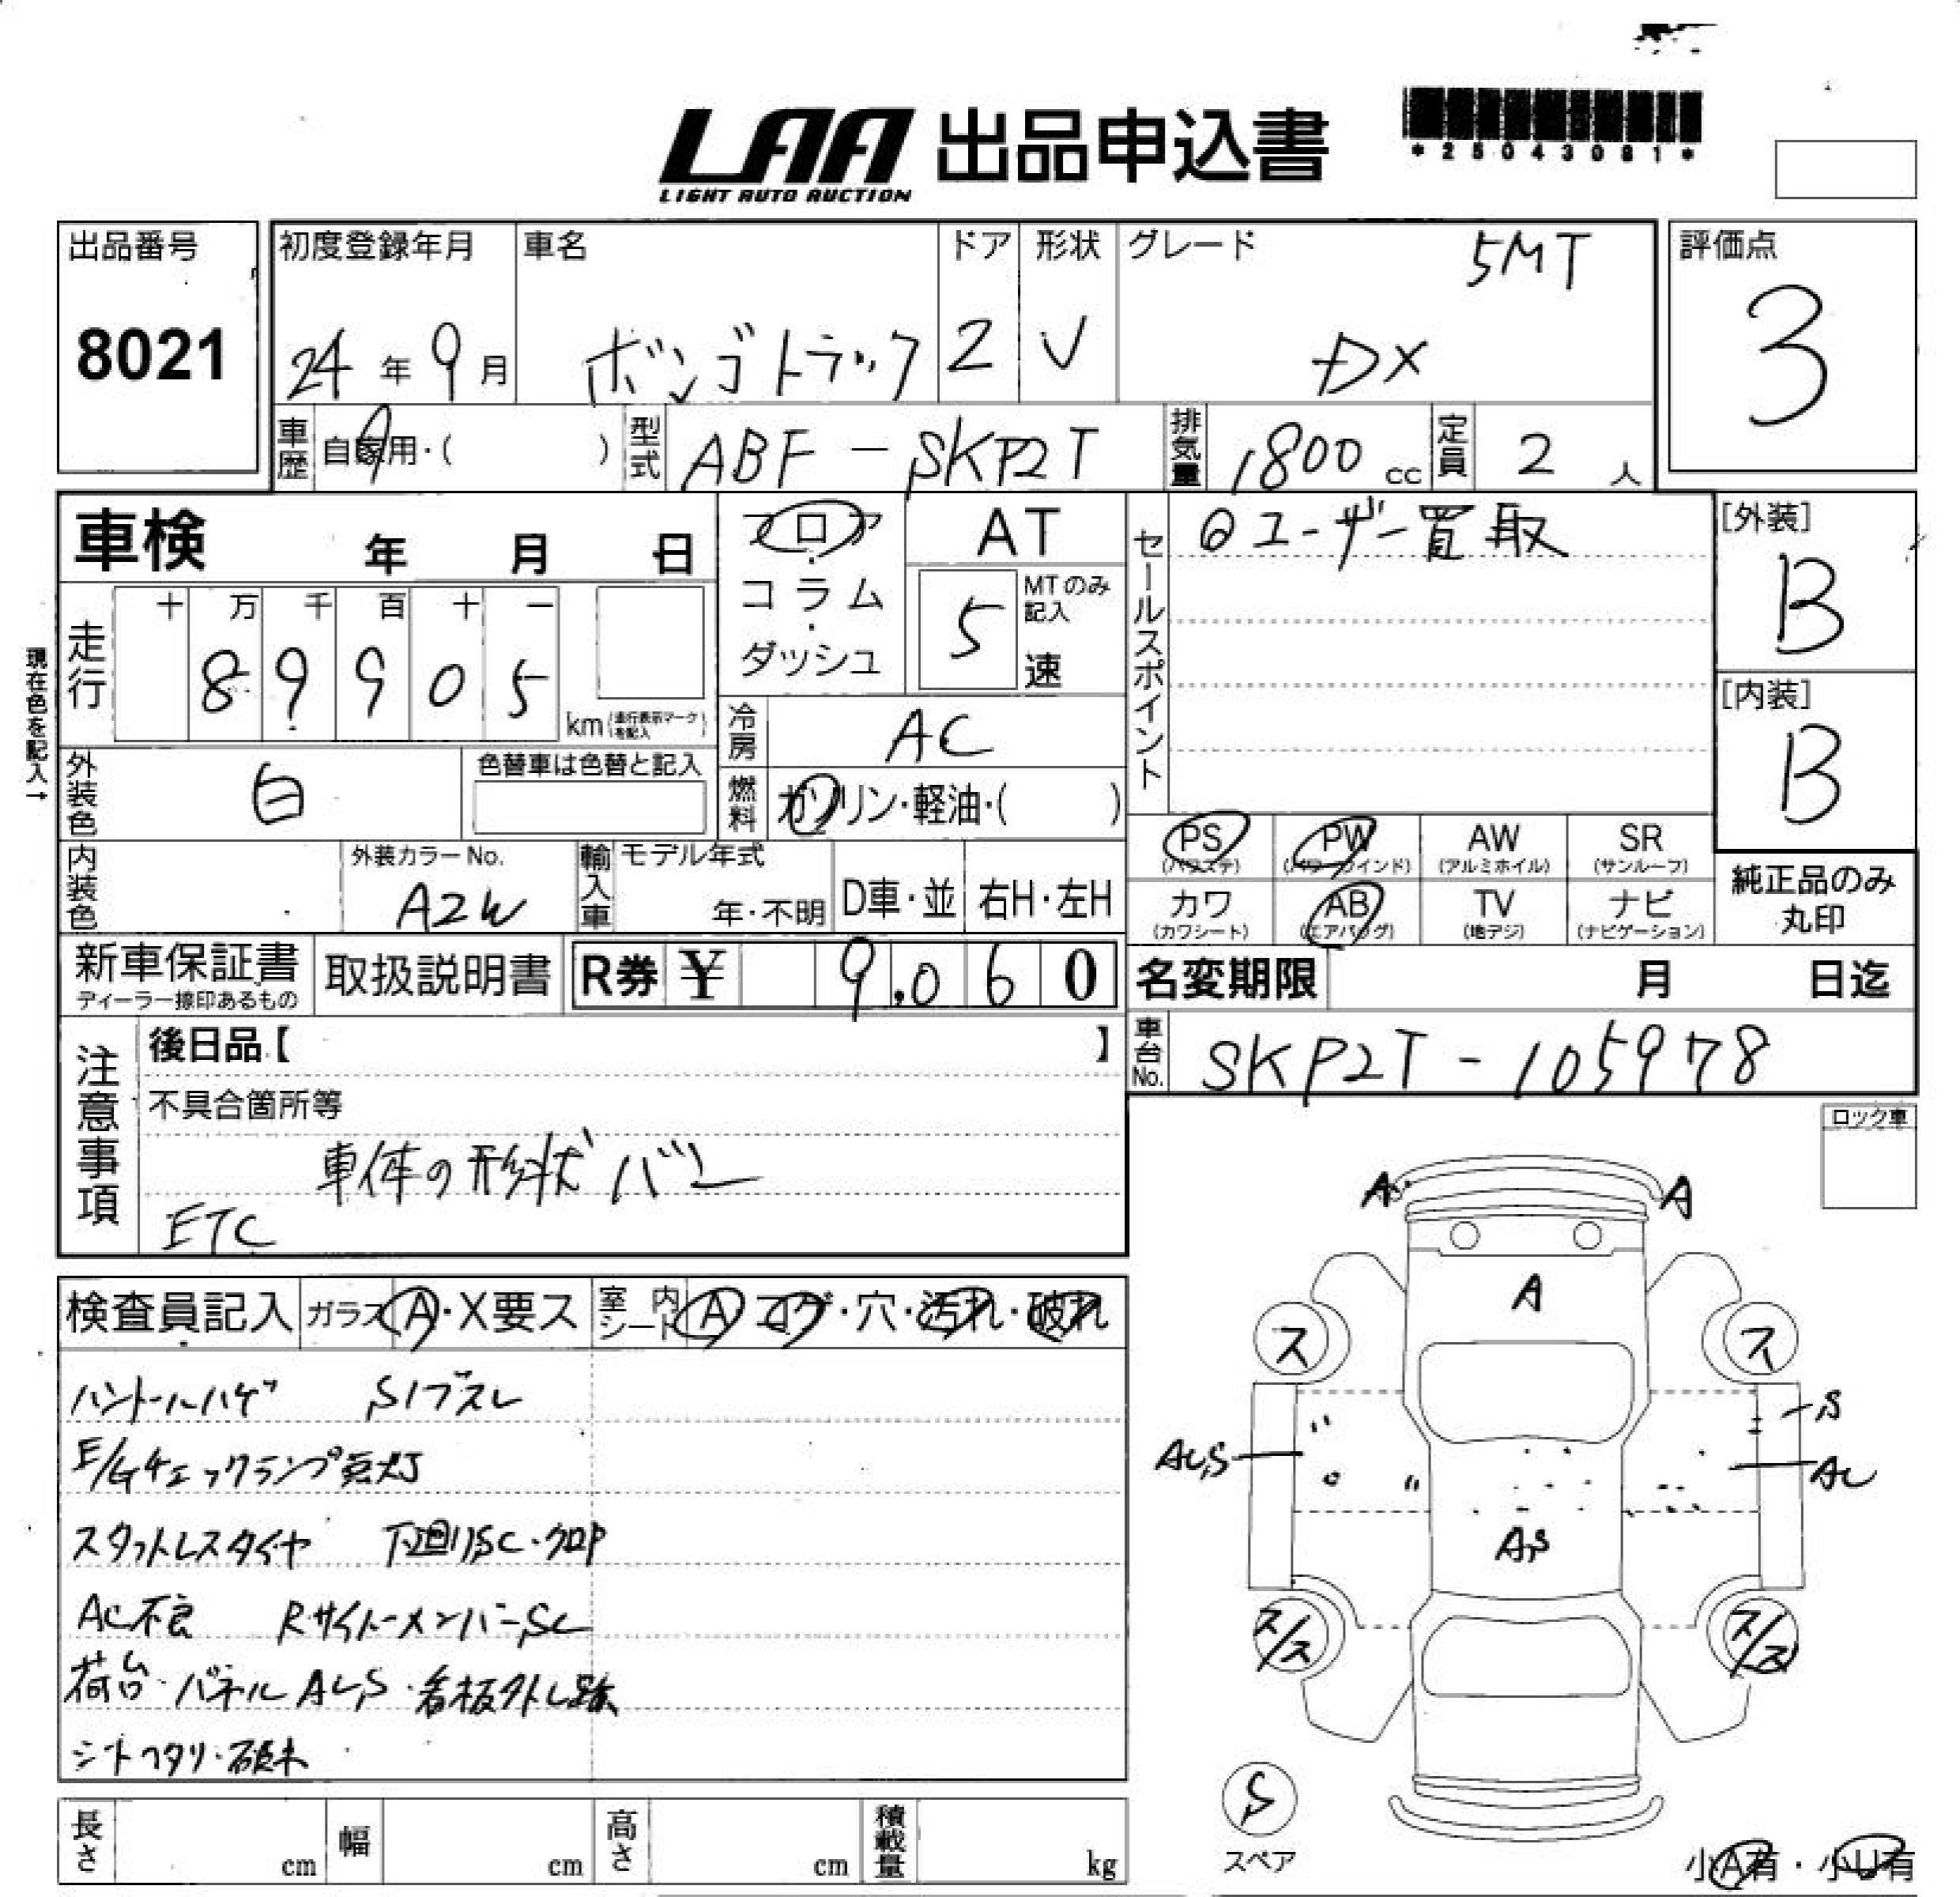 LAA 出品申込書
LIGHT AUTO AUCTION
*25043081*
出品番号
8021
初度登録年月
24年9月
車名
ボンゴトラック
ドア
2
形状
V
グレード
5MT
DX
評価点
3
車歴
自家用・( )
型式
ABF-SKP2T
排気量
1800 cc
定員
2人
車検 年 月 日
フロア・コラム・ダッシュ
AT
5
MTのみ記入
速
セールスポイント
◎ユーザー買取
[外装]
B
[内装]
B
現在色を記入→
走行
十 万 千 百 十 一
8 9 9 0 5
km(走行表示マークを記入)
冷房
AC
外装色
白
色替車は色替と記入
燃料
ガソリン・軽油・( )
PS
(パワステ)
PW
(パワーウインド)
AW
(アルミホイル)
SR
(サンルーフ)
カワ
(カワシート)
AB
(エアバッグ)
TV
(地デジ)
ナビ
(ナビゲーション)
純正品のみ
丸印
内装色
外装カラーNo.
A2W
輸入車
モデル年式
年・不明
D車・並
右H・左H
新車保証書
ディーラー捺印あるもの
取扱説明書
R券 ¥ 9,060
名変期限 月 日迄
車台No.
SKP2T-105978
注意事項
後日品【 】
不具合箇所等
車体の形状 バン
ETC
ロック車
検査員記入
ガラス A・X要ス
室内シート A コゲ・穴・汚れ・破れ
ハンドルハゲ Sノブスレ
E/Gチェックランプ点灯
スタットレスタイヤ 下廻りSC・クロP
AC不良 RサイドーメンバーSC
荷台・パネルAU,S・看板外し跡
シートヘタリ・破れ
A
A
A
ス
ス
S
AU,S
AU
A,S
ス/ス
ス/ス
S
スペア
小A有・小U有
長さ cm
幅 cm
高さ cm
積載量 kg